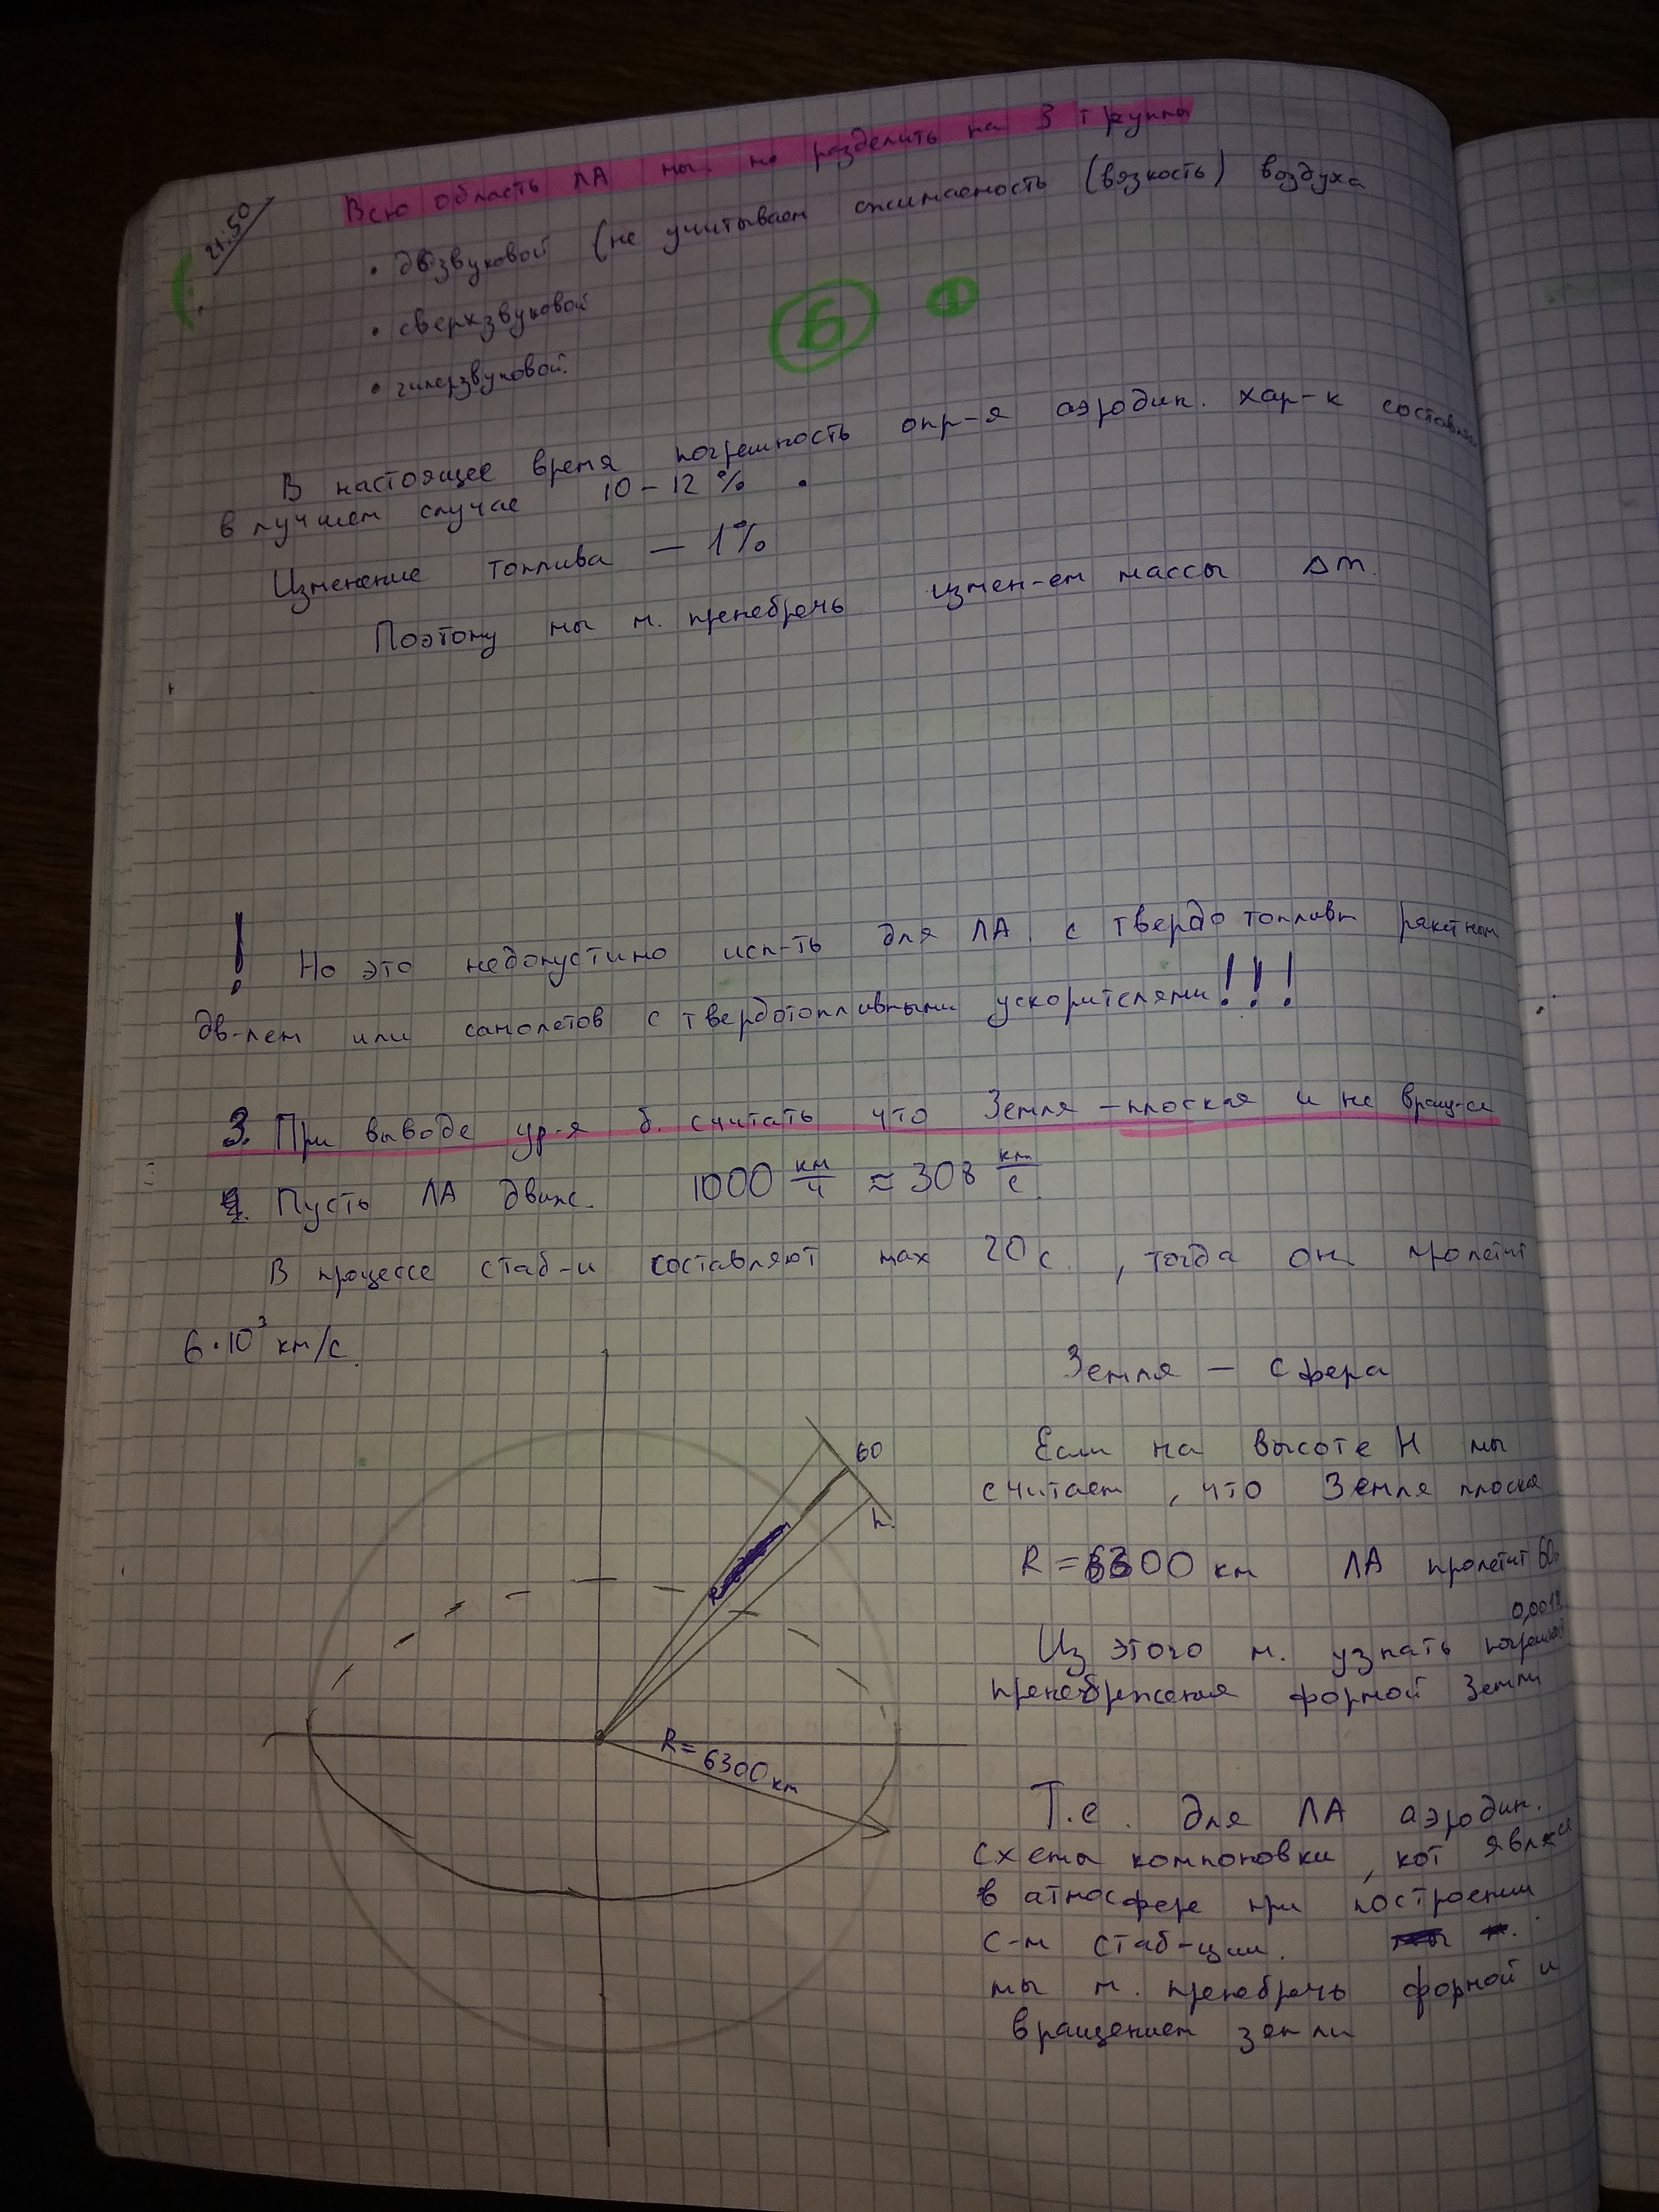 21.50
Всю область ЛА мы. м. разделить на 3 группы
• дозвуковой (не учитываем сжимаемость (вязкость) воздуха
• сверхзвуковой
• гиперзвуковой.
6 1
В настоящее время погрешность опр-я аэродин. хар-к составляет
в лучшем случае 10-12 %.
Изменение топлива — 1%
Поэтому мы м. пренебречь измен-ем массы Δm.
! Но это недопустимо исп-ть для ЛА. с твердо топливн ракетном
дв-лем или самолетов с твердотопливными ускорителями!!!
3. При выводе ур-я б. считать что Земля – плоская и не вращ-ся
4. Пусть ЛА движ. 1000 км/ч ≈ 308 км/с.
В процессе стаб-и составляют max 20 с., тогда он пролетит
6·10³ км/с.
Земля — сфера
60
h.
Если на высоте H мы
считаем, что Земля плоская
R = 6300 км ЛА пролетит 60
0,001%
Из этого м. узнать погрешность
пренебрежения формой Земли
R = 6300 км
Т.е. для ЛА аэродин.
схемы компоновки, кот явл-ся
в атмосфере при построении
с-м стаб-ции.
мы м. пренебречь формой и
вращением земли